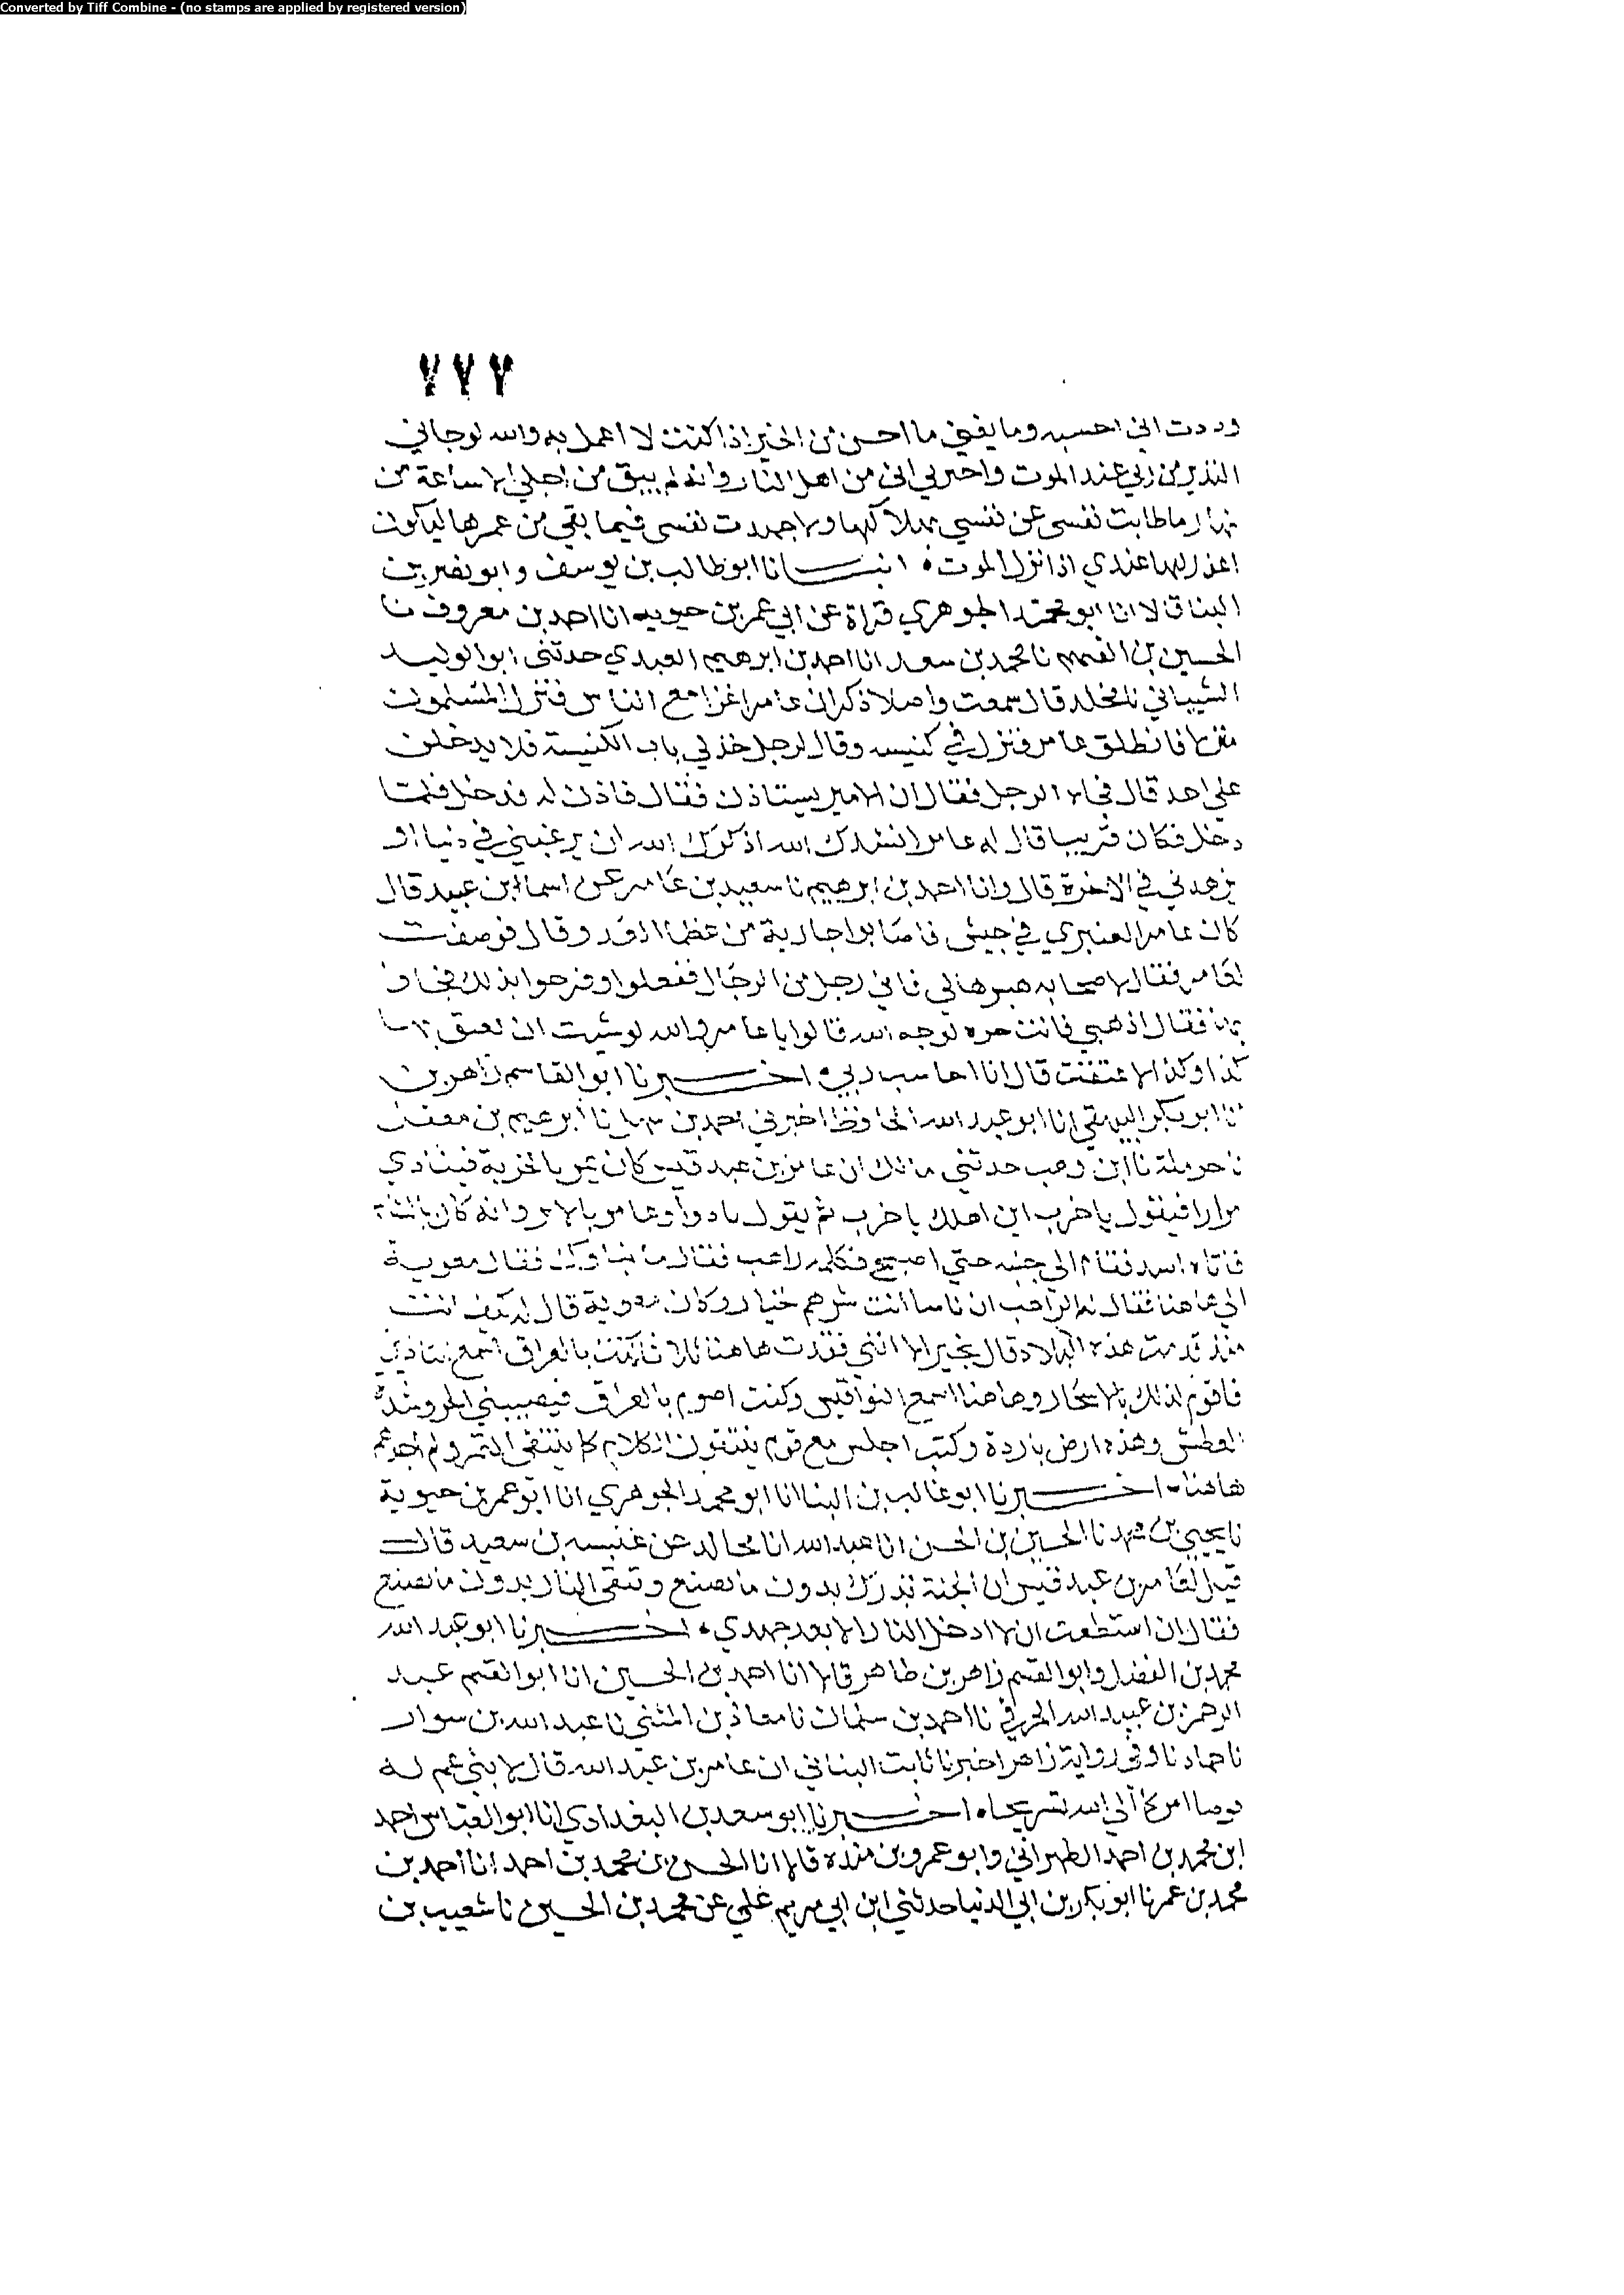 Converted by Tiff Combine - (no stamps are applied by registered version)
٧٧٧
وددت اني احسبه وما يفى ما احسن من الخير اذا كنت لا اعمل به والله لو جاني
النذير من ربي عند الموت واخبرني اني من اهل النار وانه لم يبق من اجلي الا ساعة من
نهار ما طابت نفسى عن نفسي بهلاكها ولاجهدت نفسى فيما بقي من عمرها ليكون
اعذر لها عندي اذا نزل الموت ٠ انبـــانا ابو طالب بن يوسف وابو نصر بن
البنا قالا انا ابو محمد الجوهري قراة عن ابي عمر بن حيويه انا احمد بن معروف نا
الحسين بن الفهم نا محمد بن سعد انا احمد بن ابرهيم العبدي حدثنى ابو الوليد
الشيباني نا مخلد قال سمعت واصلا ذكر ان عامرا غزا مع الناس فنزل المسلمون
منزلا فانطلق عامر فنزل في كنيسه وقال لرجل خذ لي باب الكنيسة فلا يدخلن
علي احد قال فجاه الرجل فقال ان الامير يستاذن فقال فاذن له فدخل فلما
دخل فكان قريبا قال له عامر انشدك الله اذكرك الله ان يرغبني في دنيا او
يزهدني في الاخرة قال وانا احمد بن ابرهيم نا سعيد بن عامر عن اسما بن عبيد قال
كان عامر العنبري في جيش فاصابوا جارية من عظما العدو وقال فوصفت
لعامر فقال لاصحابه هبوها لي فاني رجل من الرجال ففعلوا وفرحوا بذلك فجاوا
بها فقال اذهبي فانت حره لوجه الله قالوا يا عامر والله لو شيت ان تعتق بها
كذا وكذا لاعتقت قال انا احاسب ربي ٠ اخـــبرنا ابو القاسم زاهر بن
انا ابو بكر البيهقي انا ابو عبد الله الحافظ اخبرني احمد بن سهل نا ابرهيم بن معقل
نا حرملة نا ابن وهب حدثني مالك ان عامر بن عبد قيس كان يمر بالخربة فينادي
مرارا فيقول يا خرب اين اهلك يا خرب ثم يقول بادوا وعامر بالاثر وانه كان بالشام
فاتاه اسد فقام الى جنبه حتي اصبح فكلمه راهب فقال ما نبا وك فقال معوية
الى هاهنا فقال له الراهب ان ناسا انت شرهم خيار وكان معوية قال له كيف انت
منذ قدمت هذه البلاد قال بخير الا انني فقدت هاهنا ثلاثا كنت بالعراق اسمع التاذين
فاقوم لذلك بالاسحار وهاهنا اسمع النواقيس وكنت اصوم بالعراق فيصيبني الحر وشدة
العطش وهذه ارض باردة وكنت اجلس مع قوم ينتقون الكلام كما ينتقى التمر ولم اجدهم
هاهنا ٠ اخـــبرنا ابو غالب بن البنا انا ابو محمد الجوهري انا ابو عمر بن حيوية
نا يحيي بن محمد نا الحسين بن الحسن انا عبد الله انا مجالد عن عنبسه بن سعيد قال
قيل لعامر بن عبد قيس ان الجنة تدرك بدون ما تصنع وتتقى النار بدون ما تصنع
فقال ان استطعت ان لا ادخل النار الا بعد جهدي ٠ اخـــبرنا ابو عبد الله
محمد بن الفضل وابو القسم زاهر بن طاهر قالا انا احمد بن الحسين انا ابو القسم عبد
الرحمن بن عبيد الله الحرفي نا احمد بن سلمان نا معاذ بن المثنى نا عبد الله بن سوار
نا حماد نا وفى رواية زاهر اخبرنا ثابت البناني ان عامر بن عبد الله قال لابنى عم له
فوضا امركما الى الله تستريحا ٠ اخـــبرنا ابو سعد بن البغدادي انا ابو العباس احمد
ابن محمد بن احمد الطهراني وابو عمرو بن منده قالا انا الحسن بن محمد بن احمد انا احمد بن
محمد بن عمر نا ابو بكر بن ابي الدنيا حدثني ابن ابي مريم علي عن محمد بن الحسين نا شعيب بن